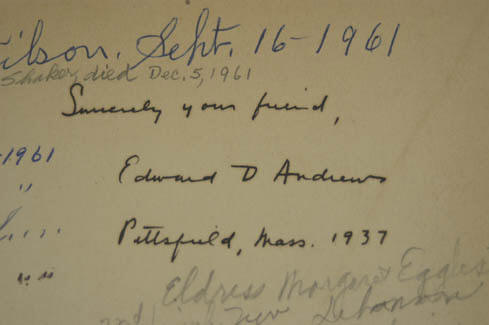 ilson, Sept. 16-1961
Shaker, died Dec. 5, 1961
Sincerely your friend,
-1961
Edward D Andrews
"
Pittsfield, Mass. 1937
" "
Eldress Margaret Eggles
New Lebanon